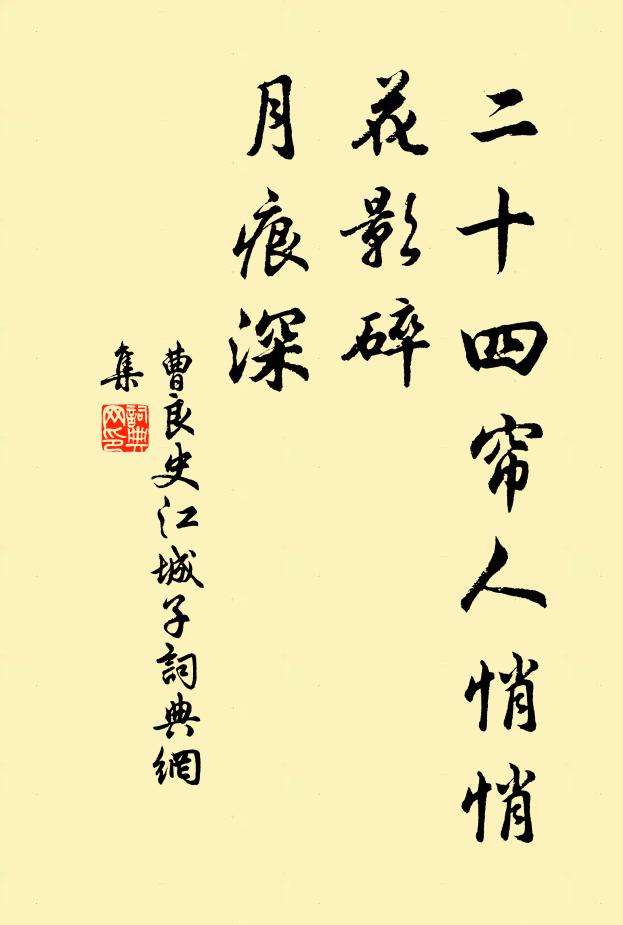 二十四帘人悄悄
花影碎
月痕深
曹良史江城子詞典網
集
詞典
网印